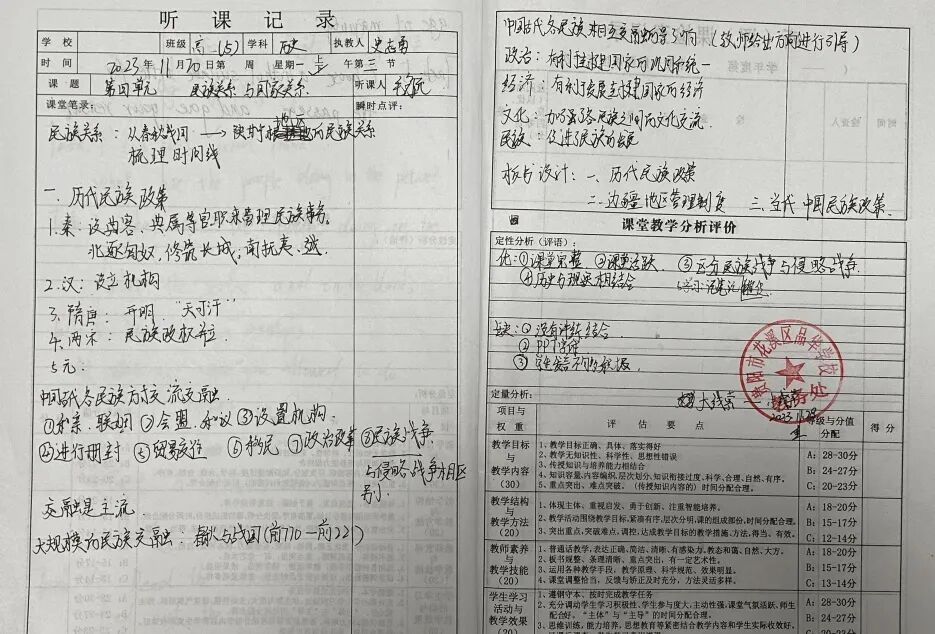 听课记录
学校 班级 高一(5) 学科 历史 执教人
时间 2023年11月20日第 周 星期一 上午第三节
课题 第四单元 民族关系与国家关系 听课人
课堂笔录: 瞬时点评:
民族关系: 从春秋战国 → 的民族关系
梳理时间线
一. 历代民族政策
1.秦: 设典客、典属等官职来管理民族事务。
北逐匈奴,修筑长城;南抚夷、越
2.汉: 设立机构
3.隋唐: 开明 "天可汗"
4.两宋: 民族政权并立
5元:
中国古代各民族方式交流交融
①和亲、联姻 ②会盟、和议 ③设置机构
④进行册封 ⑤贸易交往 ⑥移民 ⑦政治改革 ⑧民族战争
与侵略战争相区
别:
交融是主流
大规模的民族交融: 春秋与战国(前770—前221)
中国古代各民族相互交融的影响 (教师给出方向进行引导)
政治: 有利于封建国家的巩固和统一
经济: 有利于发展封建国家的经济
文化: 加强了各民族之间的文化交流.
民族: 促进了民族的发展
板书设计: 一、历代民族政策
二、边疆地区管理制度 三、当代中国民族政策.
课堂教学分析评价
定性分析(评语):
优: ①课堂完整 ②课堂活跃. ③区分民族战争与侵略战争.
④历史与现实相结合
缺: ①没有
② PPT
③
贵阳市花溪区品华学校
教务处
定量分析: 大线索
2023.11.28
项目与权重 评估要点 等级与分值分配 得分
教学目标与教学内容(30)
1、教学目标正确、具体、落实得好
2、教学无知识性、科学性、思想性错误
3、传授知识与培养能力相结合
4、知识容量,内容编织,层次划分,知识衔接过度,科学、合理、自然、有序。
5、重点突出、难点突破。(传授知识内容的)时间分配合理。
A: 28-30分
B: 24-27分
C: 20-23分
教学结构与教学方法(20)
1、体现主体、重视启发、勇于创新、注重智能培养。
2、教学活动围绕教学目标,紧凑有序,层次分明,课的组成部份,时间分配合理。
3、突出重点,突破难点,调控,达成教学目标的教学措施、方法,得当、有效。
A: 18-20分
B: 15-17分
C: 12-14分
教师素养与教学技能(20)
1、普通话教学,表达正确、简洁、清晰、有感染力,教态和蔼、自然、大方。
2、板书规整、条理清晰、重点突出、有一定艺术性。
3、运用各种教学手段,教学原理、科学规范、效果明显。
4、课堂调整恰当,反馈与矫正及时充分,方法灵活多样。
A: 18-20分
B: 15-17分
C: 13-14分
学生学习活动与教学效果
1、遵钢守本、按时完成教学任务
2、充分调动学生学习积极性、学生参与度大,主动性强,课堂气氛活跃、师生
配合好。"主体"与"主导"的时间分配合理。
3、思维训练,能力培养,思想教育等紧密结合教学内容和学生实际收效好,
A: 28-30分
B: 24-27分
C: 20-23分